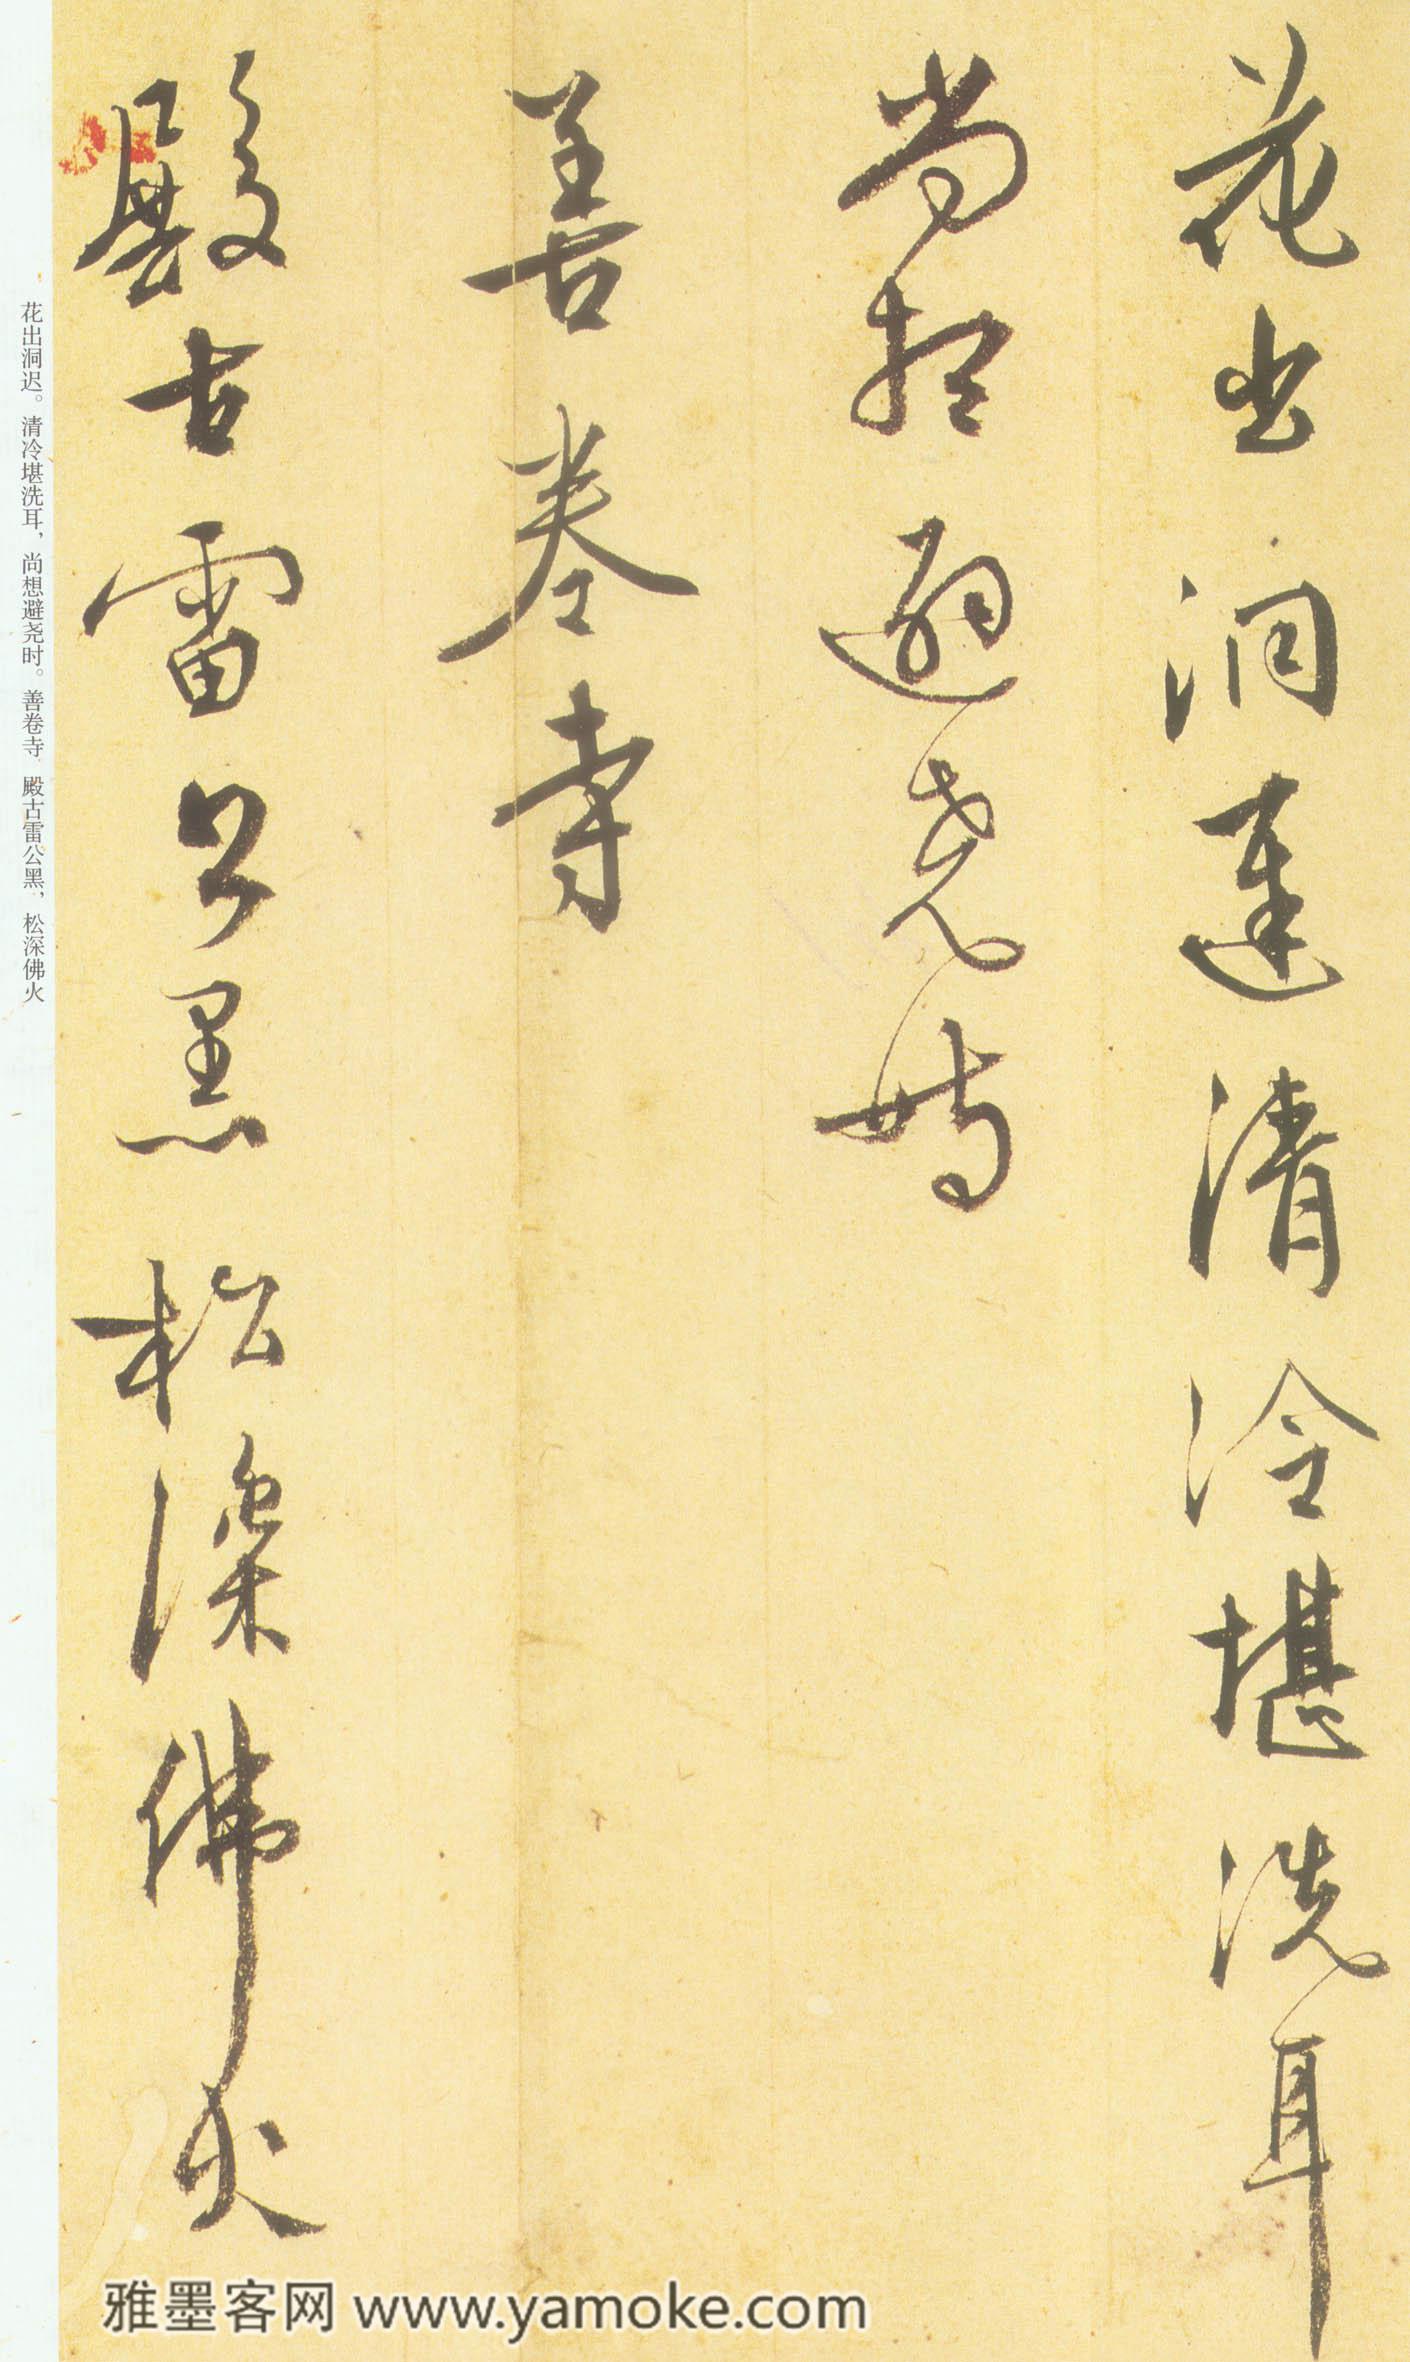 花出洞遲清泠堪洗耳
尚想避堯時
善卷寺
殿古雷公黑松深佛火
花出洞迟。清冷堪洗耳，尚想避尧时。善卷寺 殿古雷公黑，松深佛火
雅墨客网 www.yamoke.com